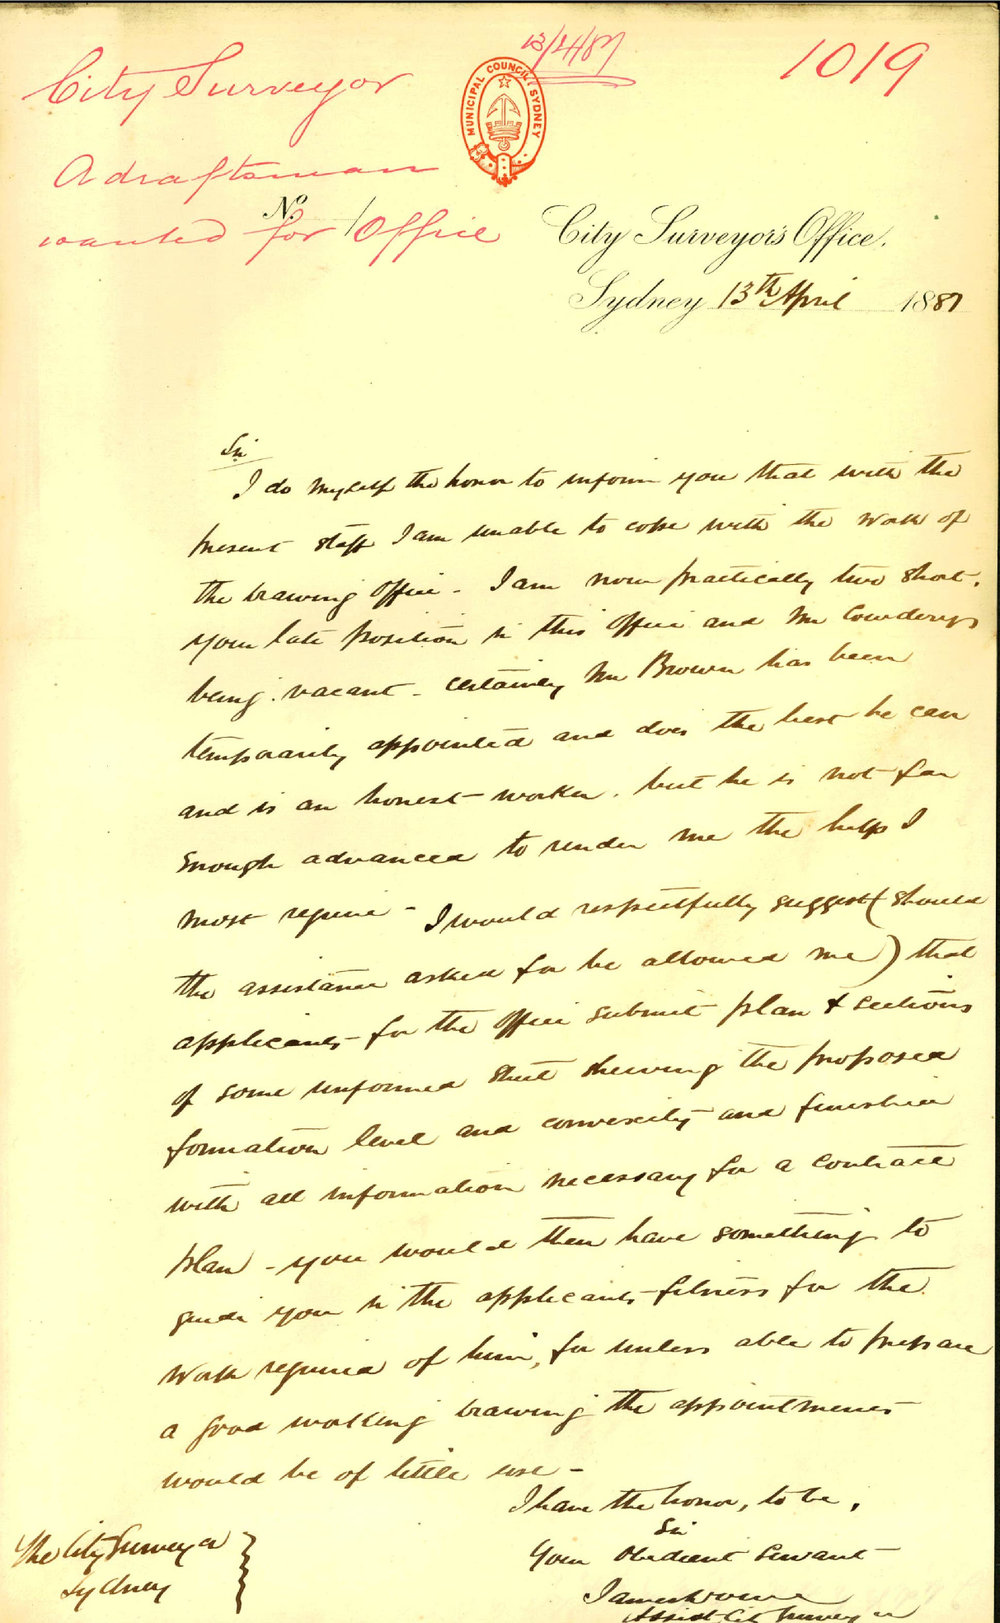 13/4/87
1019
City Surveyor
A draftsman
wanted for Office
MUNICIPAL COUNCIL SYDNEY
No.
City Surveyor's Office.
Sydney 13th April 1887
Sir
I do myself the honor to inform you that with the
present staff I am unable to cope with the work of
the Drawing Office - I am now practically two short.
your late position in this office and Mr Cowderys
being vacant - certainly Mr Brown has been
temporarily appointed and does the best he can
and is an honest worker. but he is not far
enough advanced to render me the help I
most require - I would respectfully suggest (should
the assistance asked for be allowed me) that
applicants for the office submit plan & sections
of some unformed street shewing the proposed
formation level and convexity and finished
with all information necessary for a contract
plan - you would then have something to
guide you in the applicants fitness for the
work required of him, for unless able to prepare
a good working drawing the appointment
would be of little use -
I have the honor, to be,
Sir
Your Obedient Servant
James
Assist. City Surveyor
The City Surveyor
Sydney